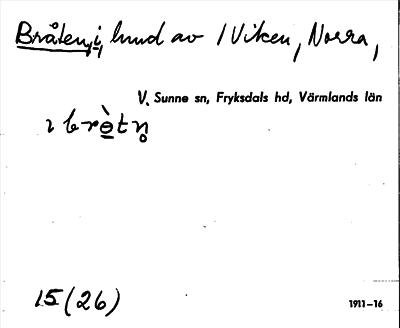 Bråten, i, hmd av 1 Viken, Norra,
V. Sunne sn, Fryksdals hd, Värmlands län
ı brɵ̀tn̥
15 (26)
1911–16